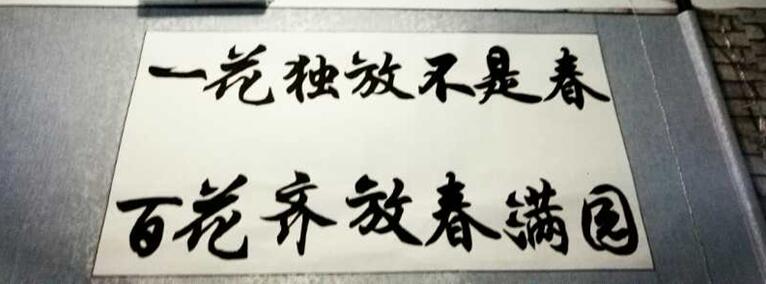 一花独放不是春
百花齐放春满园